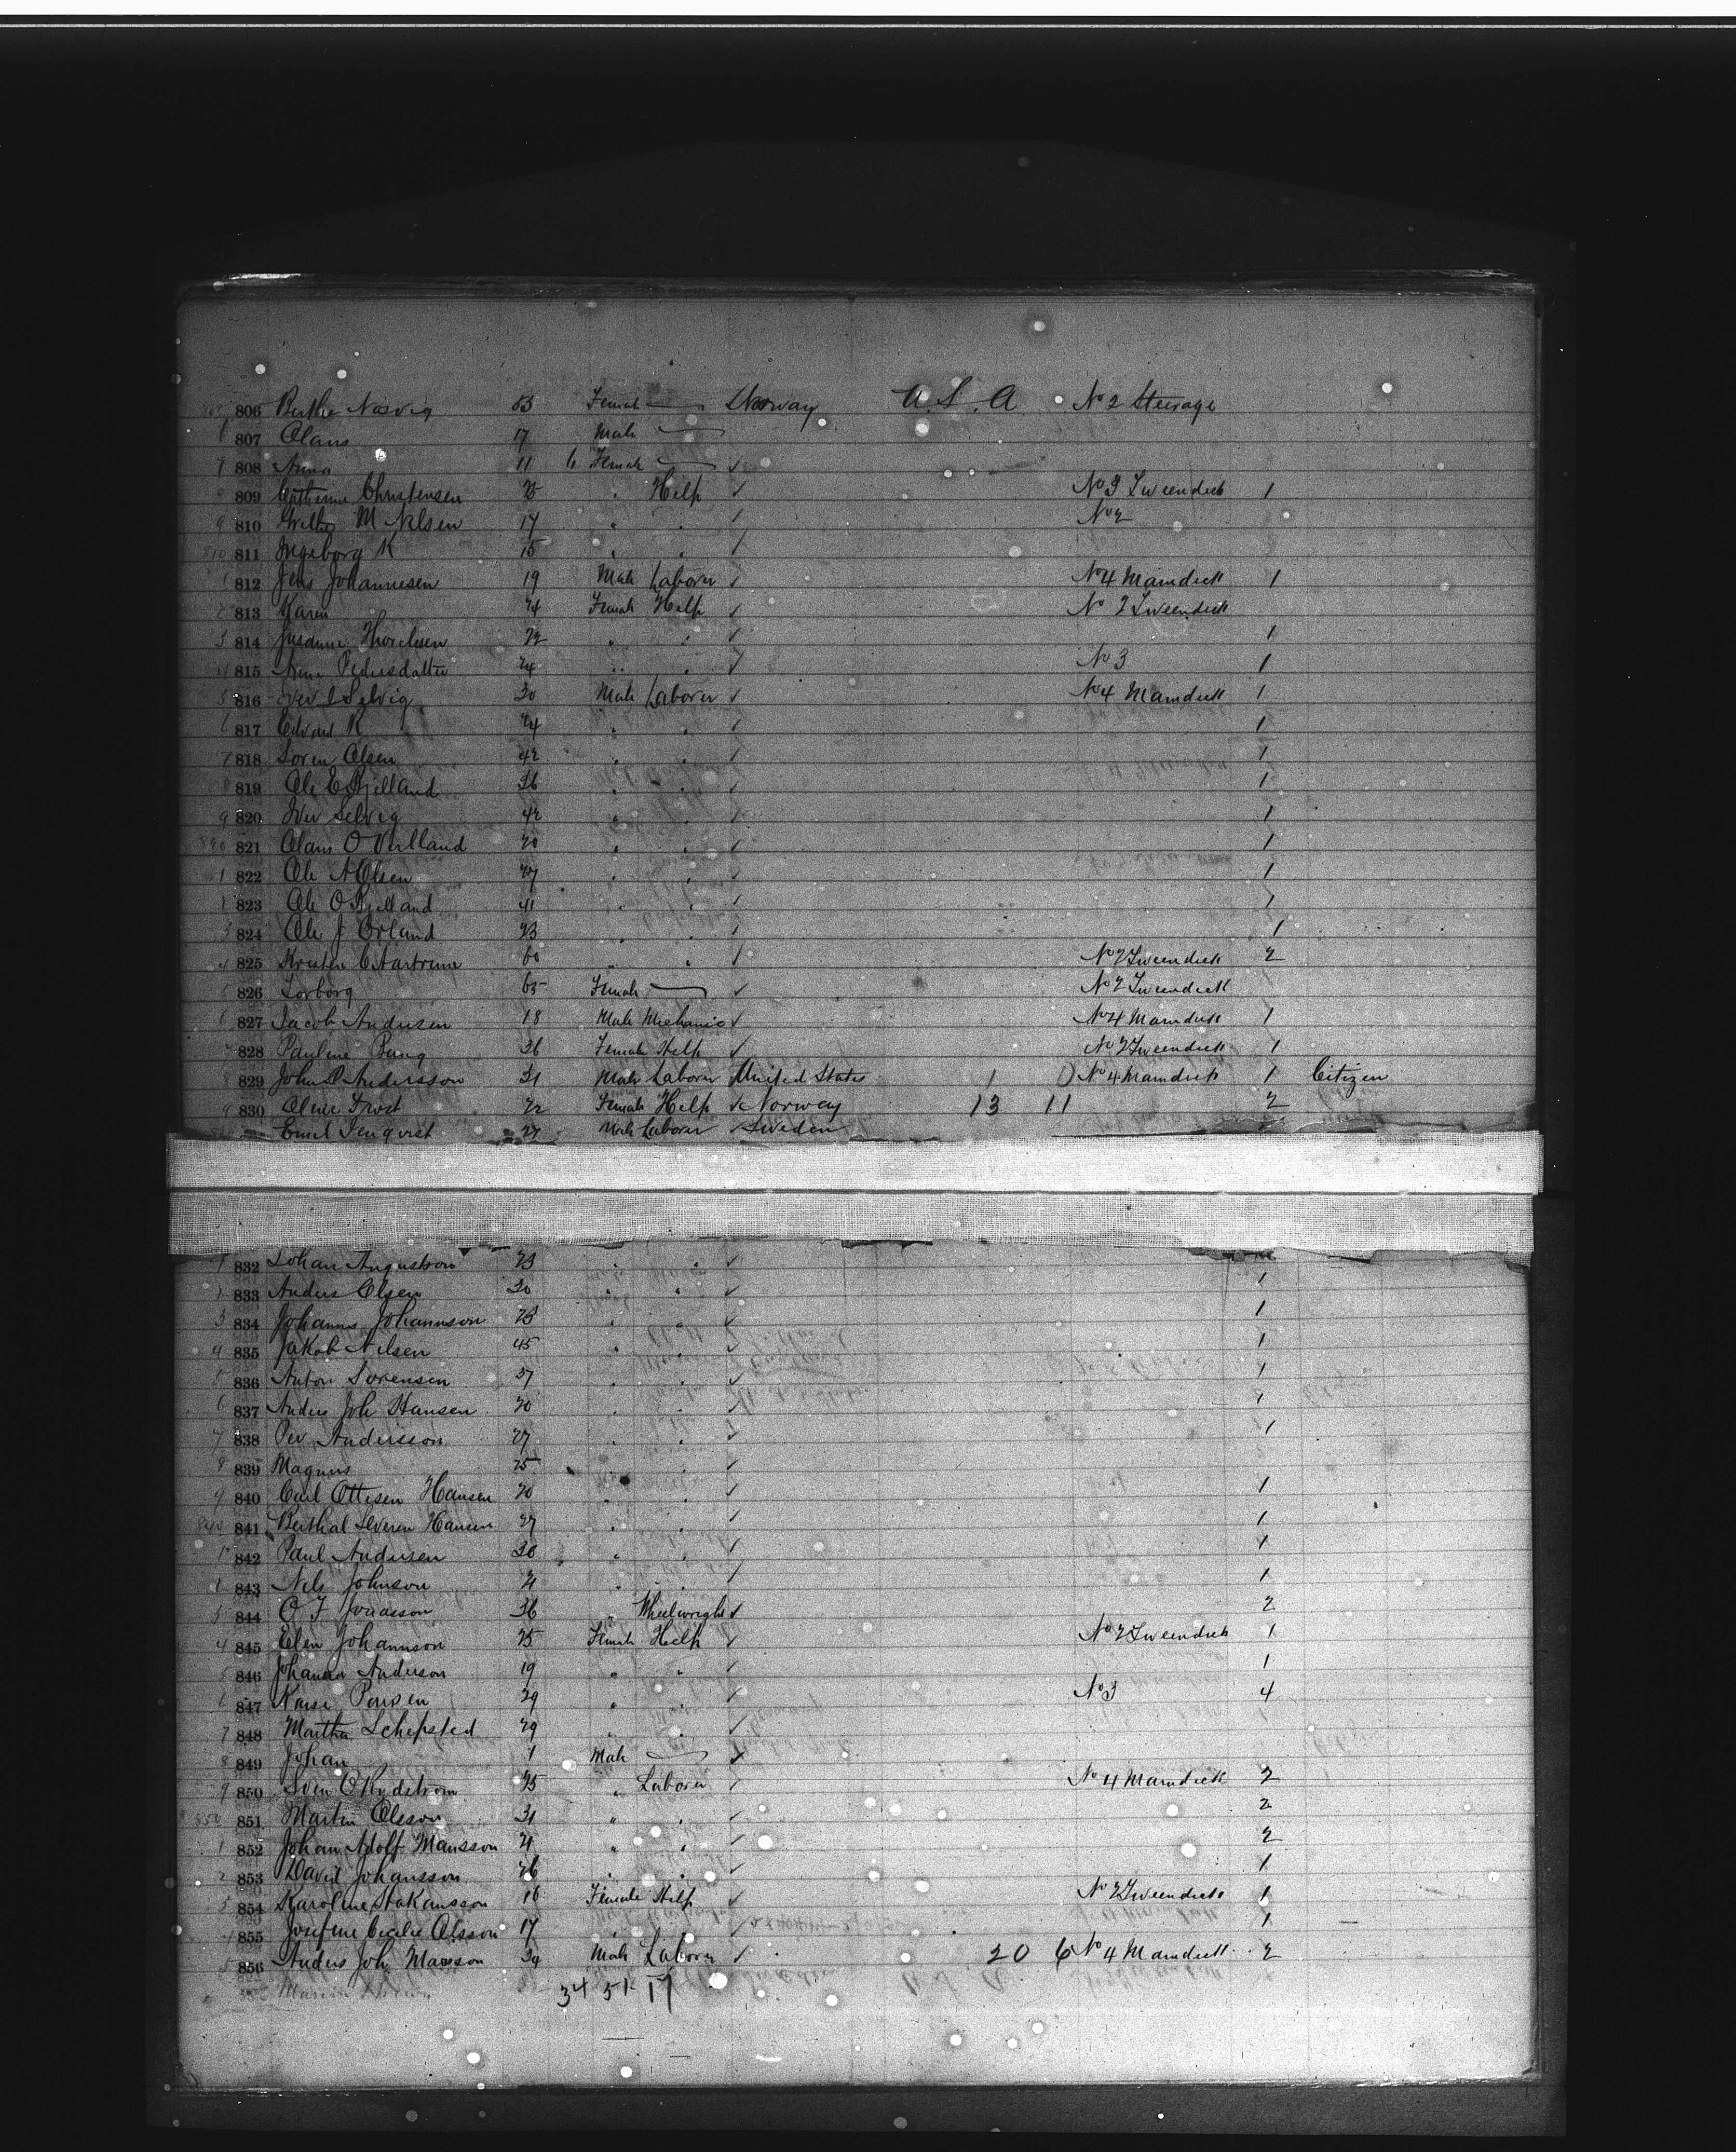 806 Berthe Nosvig 53 Female Norway U.S.A No 2 Steerage
807 Claus 17 Male
808 Anna 11 6 Female ✓
809 Catherine Christensen 25 " Help ✓ No 3 Tweendeck 1
810 M Nelsen 17 " " ✓ No 2
811 Ingeborg K 15 " " ✓
812 Jens Johannesen 19 Male Laborer ✓ No 4 Maindeck 1
813 Karen 24 Female Help ✓ No 2 Tweendeck
814 Susanne 22 " " ✓ 1
815 Anne Pedersdatter 24 " " ✓ No 3 1
816 Selvig 30 Male Laborer ✓ No 4 Maindeck 1
817 Edvard K 24 " " ✓ 1
818 Soren Olsen 42 " " ✓ 1
819 Ole E Kjelland 36 " " ✓ 1
820 Iver Selvig 42 " " ✓ 1
821 Claus O 20 " " ✓ 1
822 Ole A Olsen 27 " " ✓ 1
823 Ole O Kjelland 41 " " ✓ 1
824 Ole J Orland 23 " " ✓ 1
825 Kristen 60 " " ✓ No 2 Tweendeck 2
826 Torborg 65 Female ✓ No 2 Tweendeck
827 Jacob Andersen 18 Male Mechanic ✓ No 4 Maindeck 1
828 Pauline Bang 26 Female Help ✓ No 2 Tweendeck 1
829 John P Andersson 31 Male Laborer United States 1 0 No 4 Maindeck 1 Citizen
830 Trost 22 Female Help ✓ Norway 13 11 2
Emil 27 Male Laborer ✓ Sweden
832 Johan Angustrom 23 " " ✓
833 Anders Olsen 30 " " ✓ 1
834 Johannes Johannson 23 " " ✓ 1
835 Jakob Nilsen 45 " " ✓ 1
836 Anton Sorensen 37 " " ✓ 1
837 Anders Joh Hansen 20 " " ✓ 1
838 Per Andersson 27 " " ✓ 1
839 Magnus 25 " " ✓
840 Carl Ottesen Hansen 20 " " ✓ 1
841 Berthal Severen Hansen 27 " " ✓ 1
842 Paul Andersen 30 " " ✓ 1
843 Nils Johnson 21 " " ✓ 1
844 O F Jonasson 36 " Wheelwright ✓ 2
845 Elen Johannson 25 Female Help ✓ No 2 Tweendeck 1
846 Johanna Anderson 19 " " ✓ 1
847 29 " " ✓ No 3 4
848 Martha Schepsted 29 " " ✓
849 Johan 1 Male ✓
850 Sven O Rydstrom 25 " Laborer ✓ No 4 Maindeck 2
851 Martin Olsson 31 " " ✓ 2
852 Johan Adolf Mansson 21 " " ✓ 2
853 David Johansson 26 " " ✓ 1
854 Karoline Hakansson 16 Female Help ✓ No 2 Tweendeck 1
855 Josefine Cecilie Olsson 17 " " ✓ 1
856 Anders Joh Masson 34 Male Laborer ✓ 20 6 No 4 Maindeck 2
34 51 17